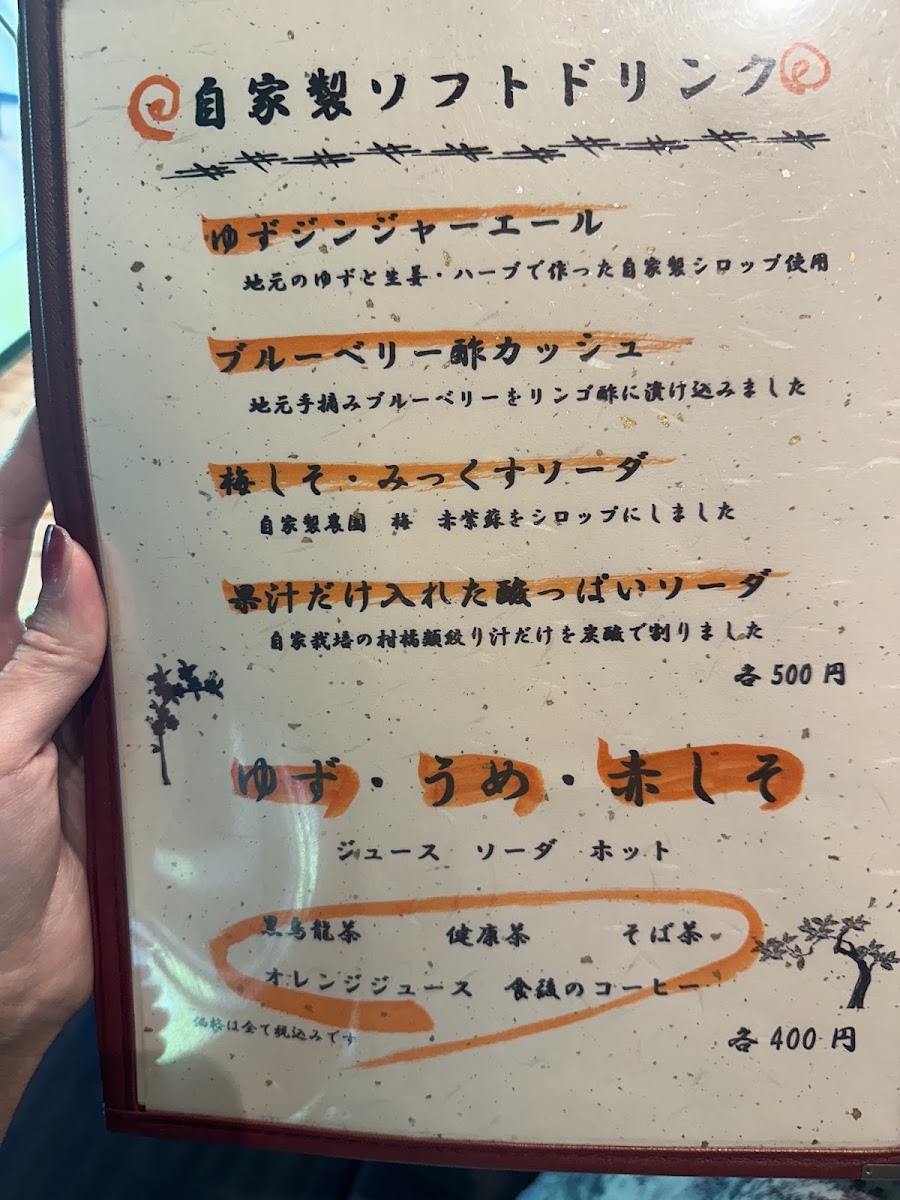 自家製ソフトドリンク
ゆずジンジャーエール
地元のゆずと生姜・ハーブで作った自家製シロップ使用
ブルーベリー酢カッシュ
地元手摘みブルーベリーをリンゴ酢に漬け込みました
梅しそ・みっくすソーダ
自家製農園 梅 赤紫蘇をシロップにしました
果汁だけ入れた酸っぱいソーダ
自家栽培の柑橘類絞り汁だけを炭酸で割りました
各 500 円
ゆず・うめ・赤しそ
ジュース ソーダ ホット
黒烏龍茶 健康茶 そば茶
オレンジジュース 食後のコーヒー
価格は全て税込みです
各 400 円